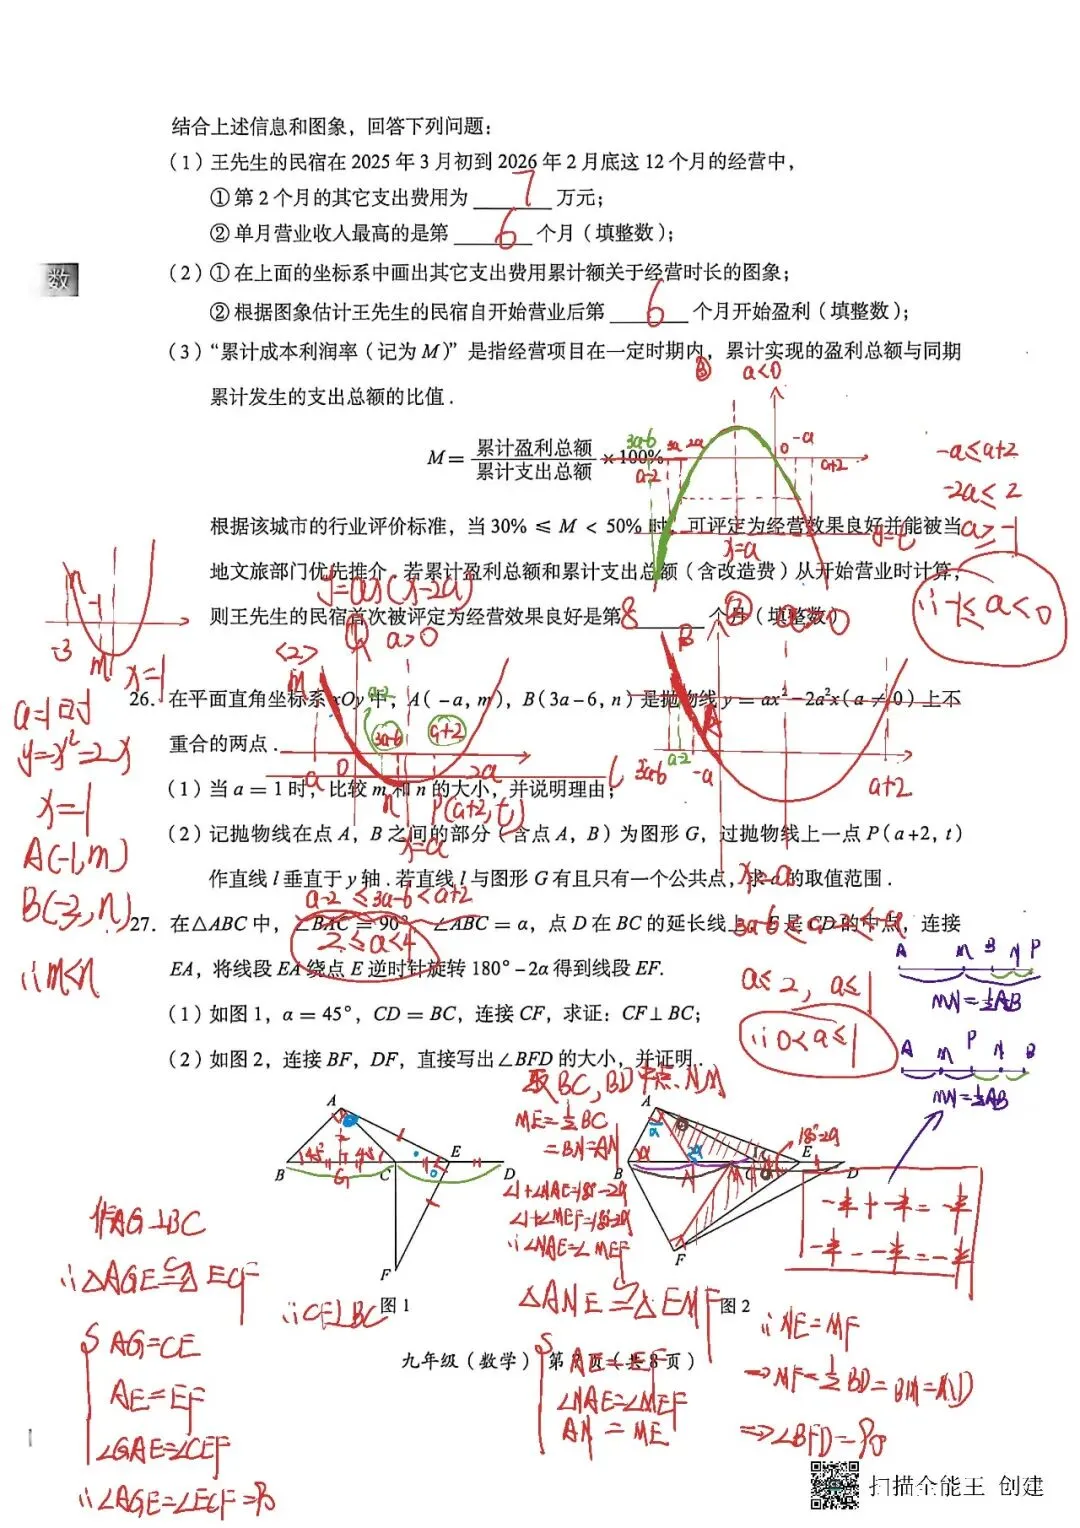 结合上述信息和图象，回答下列问题：
（1）王先生的民宿在 2025 年 3 月初到 2026 年 2 月底这 12 个月的经营中，
① 第 2 个月的其它支出费用为 7 万元；
② 单月营业收入最高的是第 6 个月（填整数）；
数
（2）① 在上面的坐标系中画出其它支出费用累计额关于经营时长的图象；
② 根据图象估计王先生的民宿自开始营业后第 6 个月开始盈利（填整数）；
（3）“累计成本利润率（记为 M）”是指经营项目在一定时期内，累计实现的盈利总额与同期
累计发生的支出总额的比值．
③ a<0
M= 累计盈利总额/累计支出总额 ×100%
3a-6 3a 2a 0 -a a+2
a-2
-a≤a+2
-2a≤2
a≥-1
∴-1≤a<0
根据该城市的行业评价标准，当 30% ≤ M < 50% 时，可评定为经营效果良好并能被当
y=t
x=a
地文旅部门优先推介．若累计盈利总额和累计支出总额（含改造费）从开始营业时计算，
y=ax(x-2a)
则王先生的民宿首次被评定为经营效果良好是第 8 个月（填整数）
n -1
-3 m x=1
① a>0
② a>0
<2>
26. 在平面直角坐标系 xOy 中，A（-a, m），B（3a-6, n）是抛物线 y = ax²-2a²x（a ≠ 0）上不
重合的两点．
a=1时
y=x²-2x
x=1
A(-1,m)
B(-3,n)
∴m<n
m a-2 3a-6 a+2
-a 0 n 2a l
P(a+2,t)
x=a
B A
3a-6 a-2 -a a+2
x=a
（1）当 a = 1 时，比较 m 和 n 的大小，并说明理由；
（2）记抛物线在点 A，B 之间的部分（含点 A，B）为图形 G，过抛物线上一点 P（a+2, t）
作直线 l 垂直于 y 轴．若直线 l 与图形 G 有且只有一个公共点，求 a 的取值范围．
a-2≤3a-6<a+2
2≤a<4
3a-6≤a-2≤-a
a≤2, a≤1
∴0<a≤1
27. 在△ABC 中，∠BAC = 90°，∠ABC = α，点 D 在 BC 的延长线上，E 是 CD 的中点，连接
EA，将线段 EA 绕点 E 逆时针旋转 180°-2α 得到线段 EF.
（1）如图 1，α = 45°，CD = BC，连接 CF，求证：CF⊥BC；
（2）如图 2，连接 BF，DF，直接写出∠BFD 的大小，并证明．
A M B N P
MN=½AB
A M P N B
MN=½AB
取BC,BD中点N,M
ME=½BC
=BN=AN
∠1+∠NAE=180-2α
∠1+∠MEF=180-2α
∴∠NAE=∠MEF
△ANE≌△EMF
AE=EF
∠NAE=∠MEF
AN=ME
A B C D E F G
45° 45°
图 1
A B N M C E D F
α α 2α 180-2α
图 2
一半+一半=一半
一半-一半=一半
作AG⊥BC
∴△AGE≌△ECF
AG=CE
AE=EF
∠GAE=∠CEF
∴∠AGE=∠ECF=90
∴CF⊥BC
∴NE=MF
⇒MF=½BD=BM=MD
⇒∠BFD=90
九年级（数学） 第 8 页（共 8 页）
扫描全能王 创建